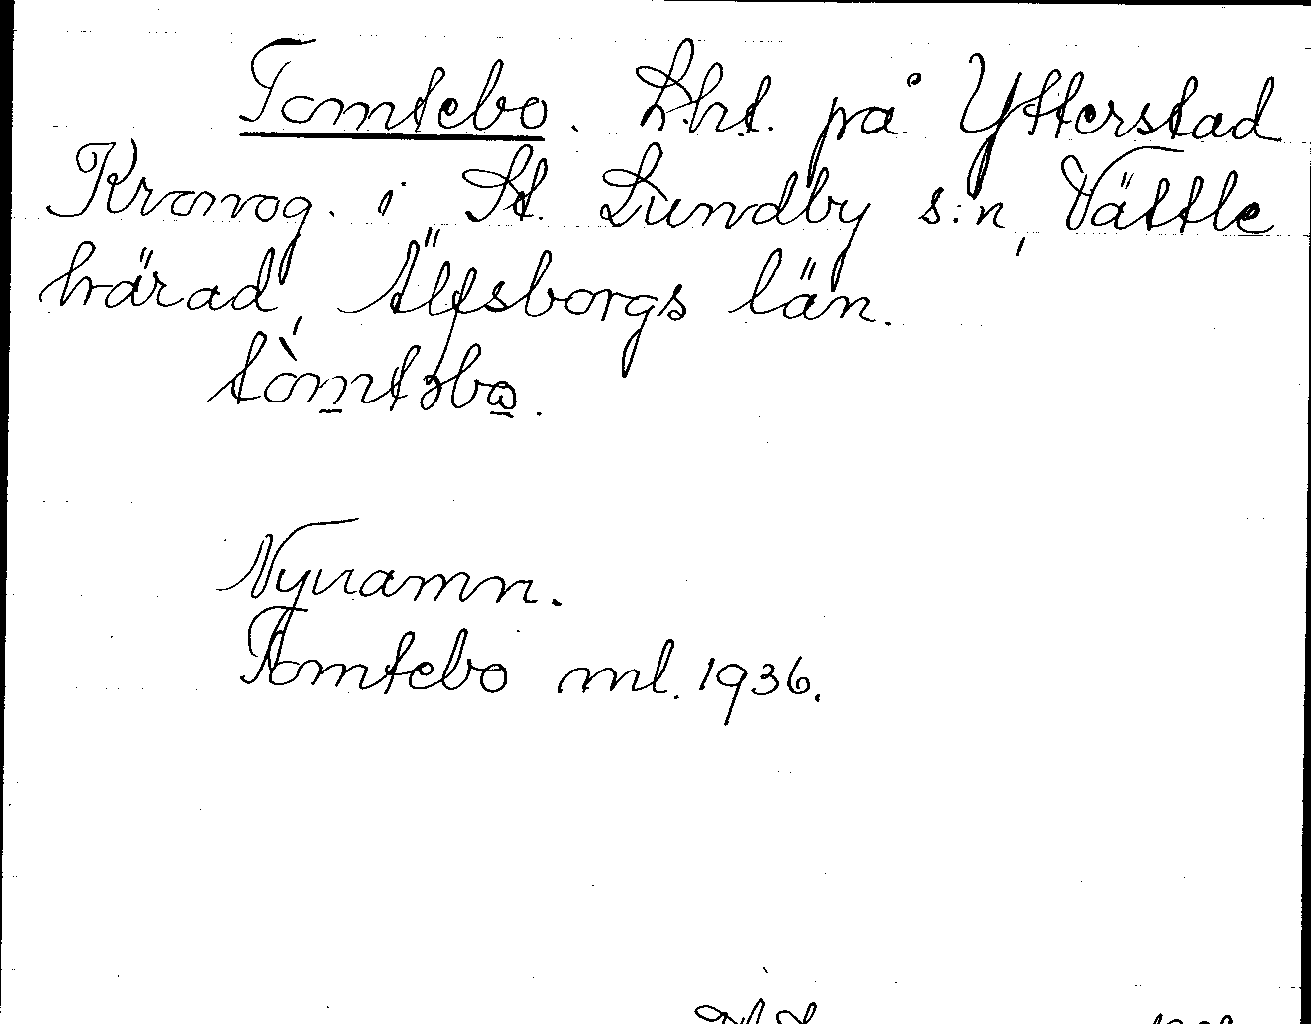 Tomtebo. Lht. på Ytterstad
Kronog. i St. Lundby s:n, Vättle
härad, Älfsborgs län.
tòmtəbω.
Nynamn.
Tomtebo ml. 1936.